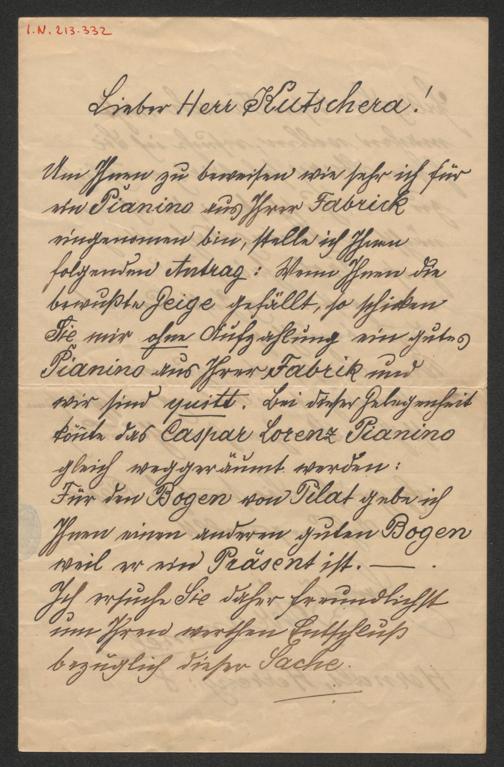 I.N. 213.332
Lieber Herr Kutschera!
Um Ihnen zu beweisen wie sehr ich für
ein Pianino aus Ihrer Fabrick
eingenomen bin, stelle ich Ihnen
folgenden Antrag: Wenn Ihnen die
bewußte Geige gefällt, so schicken
Sie mir ohne Aufzahlung ein gutes
Pianino aus Ihrer Fabrik und
wir sind quitt. Bei dieser Gelegenheit
könte das Caspar Lorenz Pianino
gleich weggeräumt werden:
Für den Bogen von Pilat gebe ich
Ihnen einen anderen guten Bogen
weil er ein Präsent ist. — .
Ich ersuche Sie daher freundlichst
um Ihren werthen Entschluß
bezüglich dieser Sache.